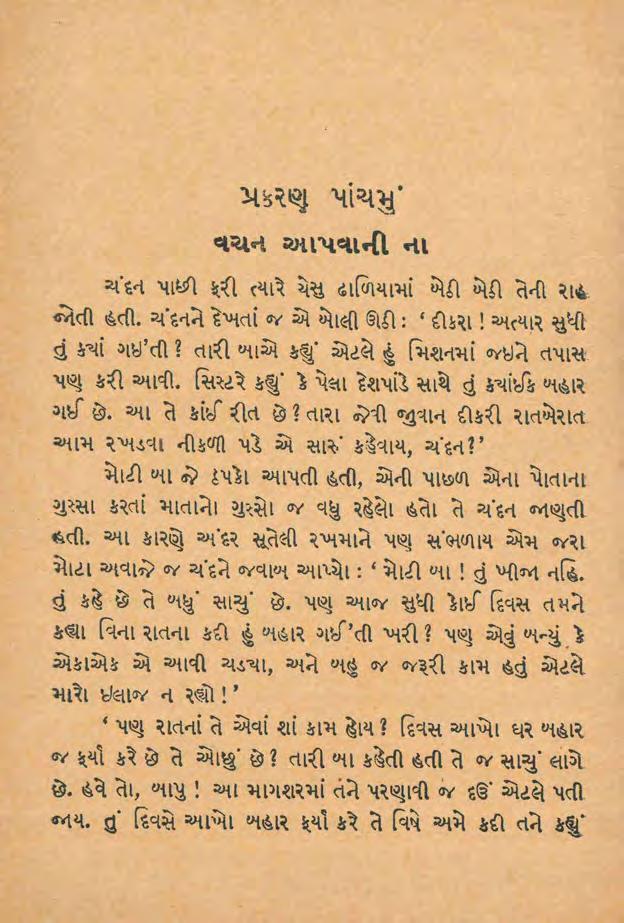 પ્રકરણ પાંચમું
વચન આપવાની ના
ચંદન પાછી ફરી ત્યારે યેસુ ઢાળિયામાં બેઠી બેઠી તેની રાહ
જોતી હતી. ચંદનને દેખતાં જ એ બોલી ઊઠી : ‘ દીકરા ! અત્યાર સુધી
તું ક્યાં ગઇ’તી ? તારી બાએ કહ્યું એટલે હું મિશનમાં જઇને તપાસ
પણ કરી આવી. સિસ્ટરે કહ્યું કે પેલા દેશપાંડે સાથે તું ક્યાંઈક બહાર
ગઈ છે. આ તે કાંઈ રીત છે ? તારા જેવી જુવાન દીકરી રાતબેરાત
આમ રખડવા નીકળી પડે એ સારું કહેવાય, ચંદન ?’
મોટી બા જે ઠપકો આપતી હતી, એની પાછળ એના પોતાના
ગુસ્સા કરતાં માતાનો ગુસ્સો જ વધુ રહેલો હતો તે ચંદન જાણતી
હતી. આ કારણે અંદર સૂતેલી રખમાને પણ સંભળાય એમ જરા
મોટા અવાજે જ ચંદને જવાબ આપ્યો : ‘ મોટી બા ! તું ખીજા નહિ.
તું કહે છે તે બધું સાચું છે. પણ આજ સુધી કોઈ દિવસ તમને
કહ્યા વિના રાતના કદી હું બહાર ગઈ’તી ખરી ? પણ એવું બન્યું કે
એકાએક એ આવી ચડ્યા, અને બહુ જ જરૂરી કામ હતું એટલે
મારો ઇલાજ ન રહ્યો ! ’
‘ પણ રાતનાં તે એવાં શાં કામ હોય ? દિવસ આખો ઘર બહાર
જ ફર્યા કરે છે તે ઓછું છે ? તારી બા કહેતી હતી તે જ સાચું લાગે
છે. હવે તો, બાપુ ! આ માગશરમાં તંને પરણાવી જ દઉં એટલે પતી
જાય. તું દિવસે આખો બહાર ફર્યા કરે તે વિષે અમે કદી તને કહ્યું